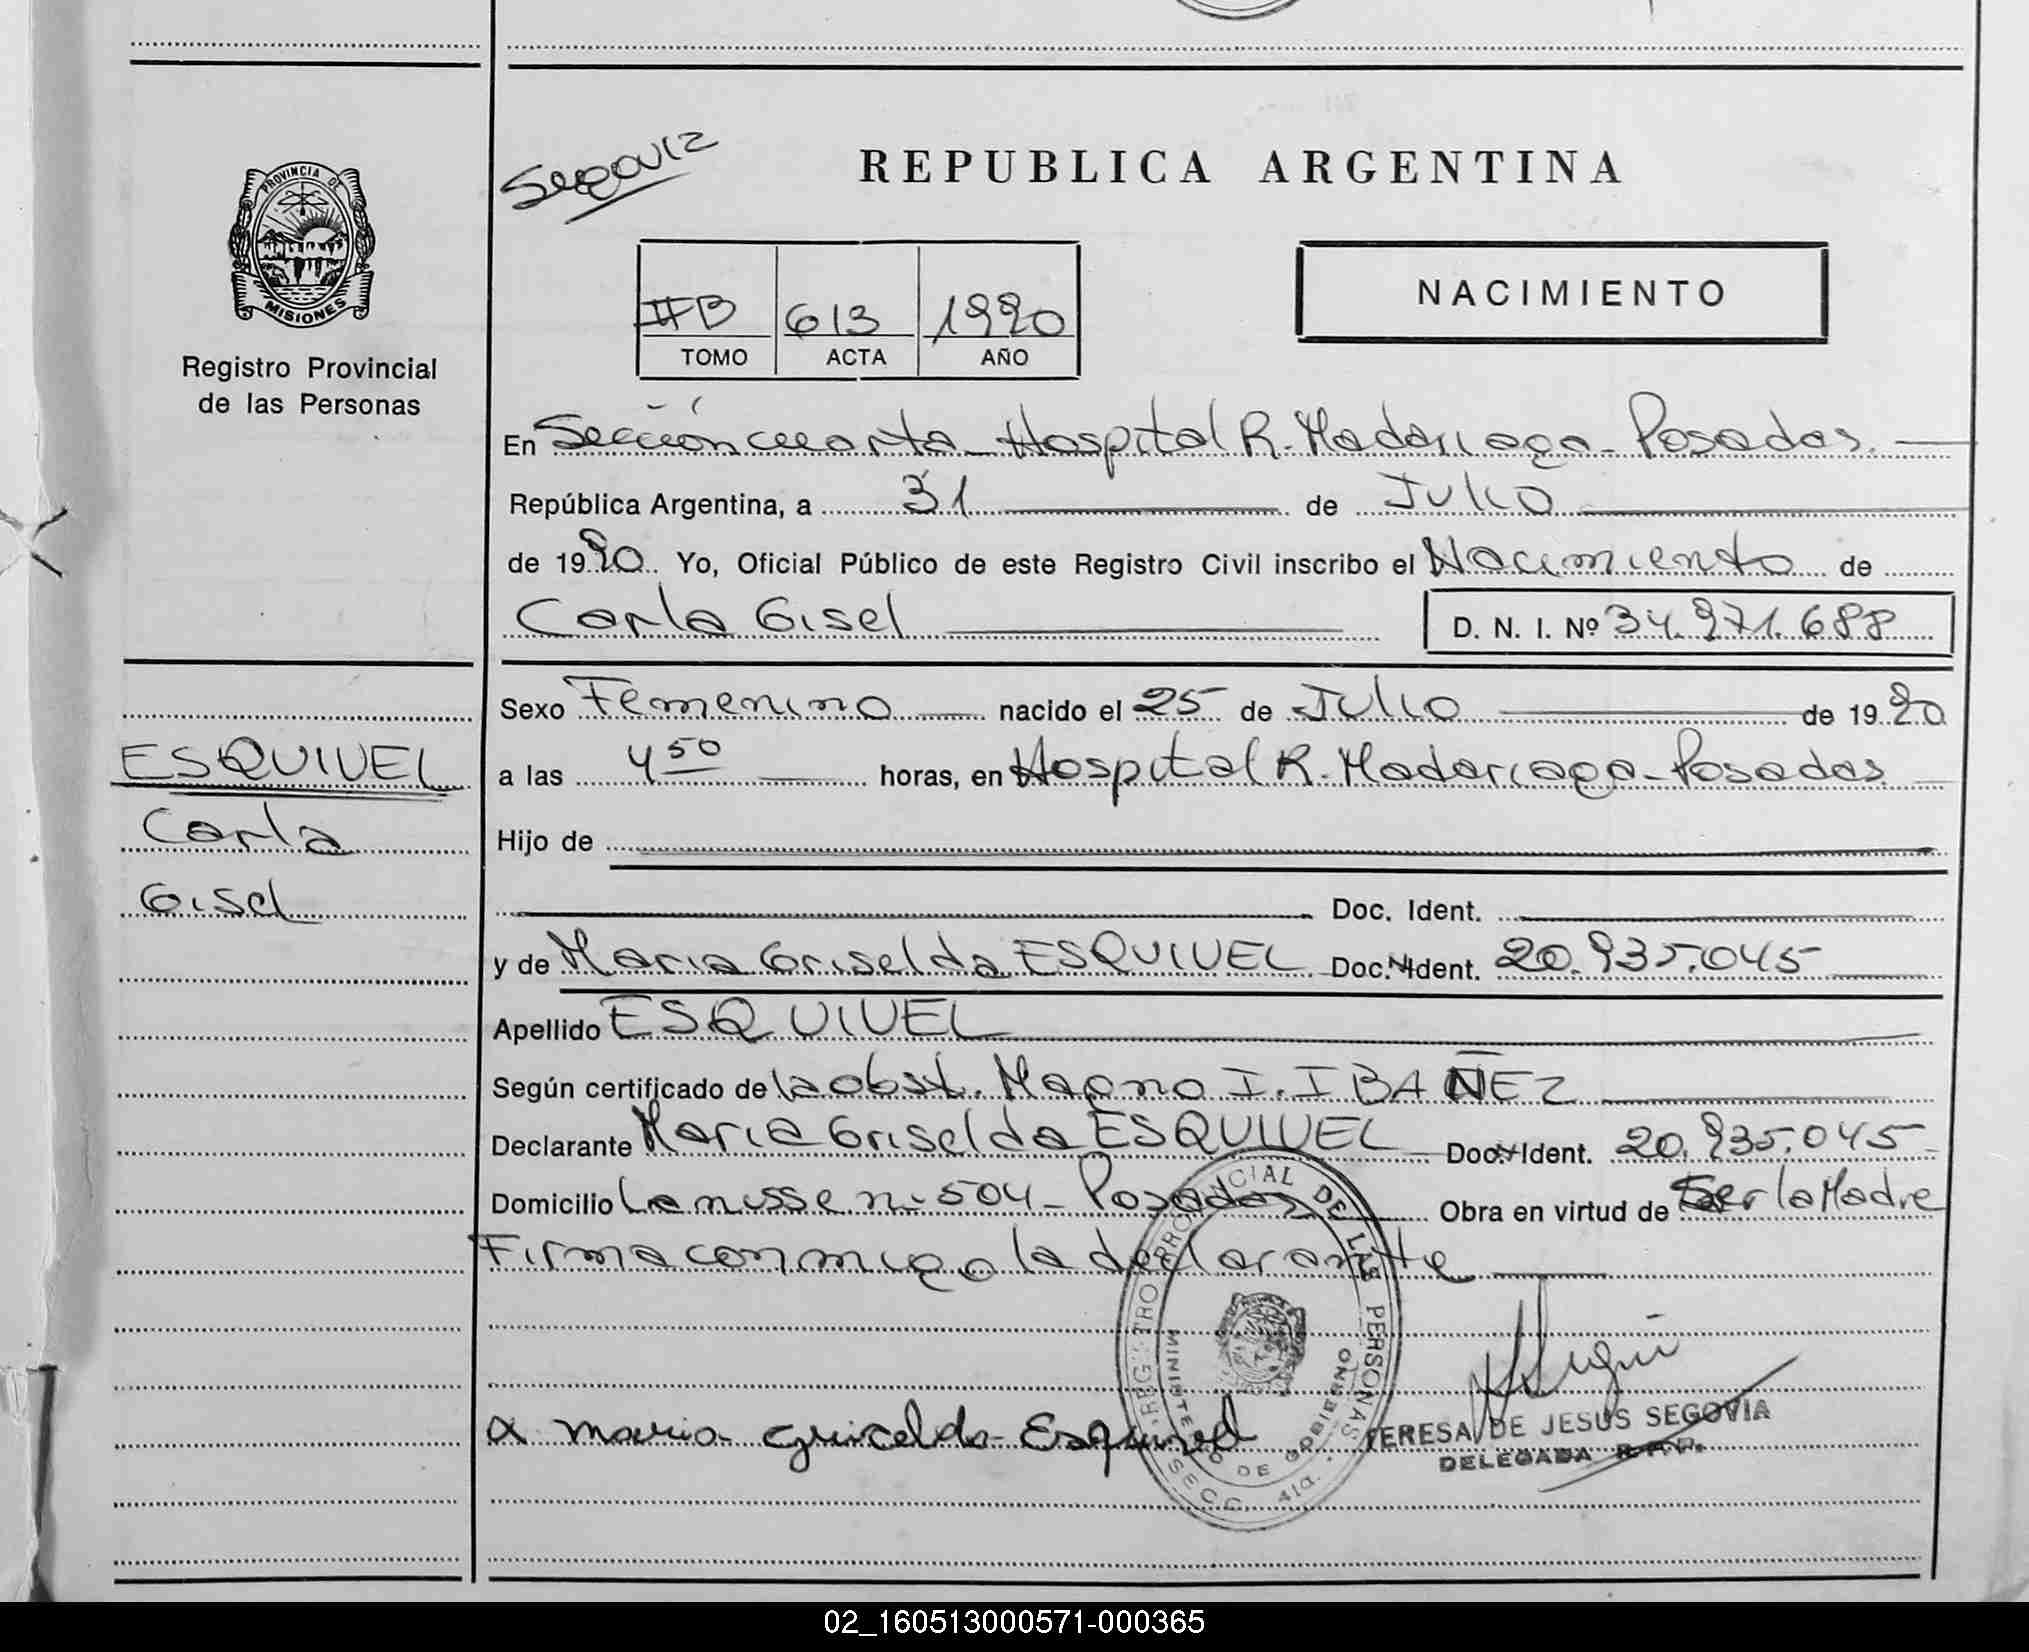 Segovia
REPUBLICA ARGENTINA
PROVINCIA DE MISIONES
Registro Provincial
de las Personas
IIB 613 1990
TOMO ACTA AÑO
NACIMIENTO
En Sección cuarta - Hospital R. Madariaga - Posadas.
República Argentina, a 31 de Julio
de 1990 Yo, Oficial Público de este Registro Civil inscribo el Nacimiento de
Carla Gisel D. N. I. Nº 34.971.688
Sexo Femenino nacido el 25 de Julio de 1990
ESQUIVEL
Carla
Gisel
a las 4 50 horas, en Hospital R. Madariaga - Posadas
Hijo de
Doc. Ident.
y de Maria Griselda ESQUIVEL Doc. Ident. 20.935.045
Apellido ESQUIVEL
Según certificado de la obst. Magno I. IBAÑEZ
Declarante Maria Griselda ESQUIVEL Doc. Ident. 20.935.045
Domicilio Lanusse n. 504 - Posadas Obra en virtud de Ser la Madre
Firma conmigo la declarante
REGISTRO PROVINCIAL DE LAS PERSONAS
MINISTERIO DE GOBIERNO
SECC. 4ta.
maria griselda Esquivel
TERESA DE JESUS SEGOVIA
DELEGADA R.P.P.
02_160513000571-000365